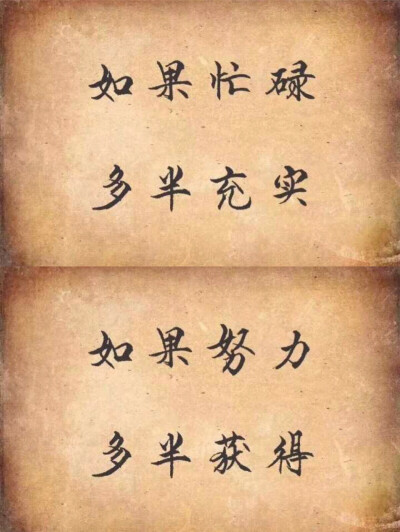 如果忙碌
多半充实
如果努力
多半获得